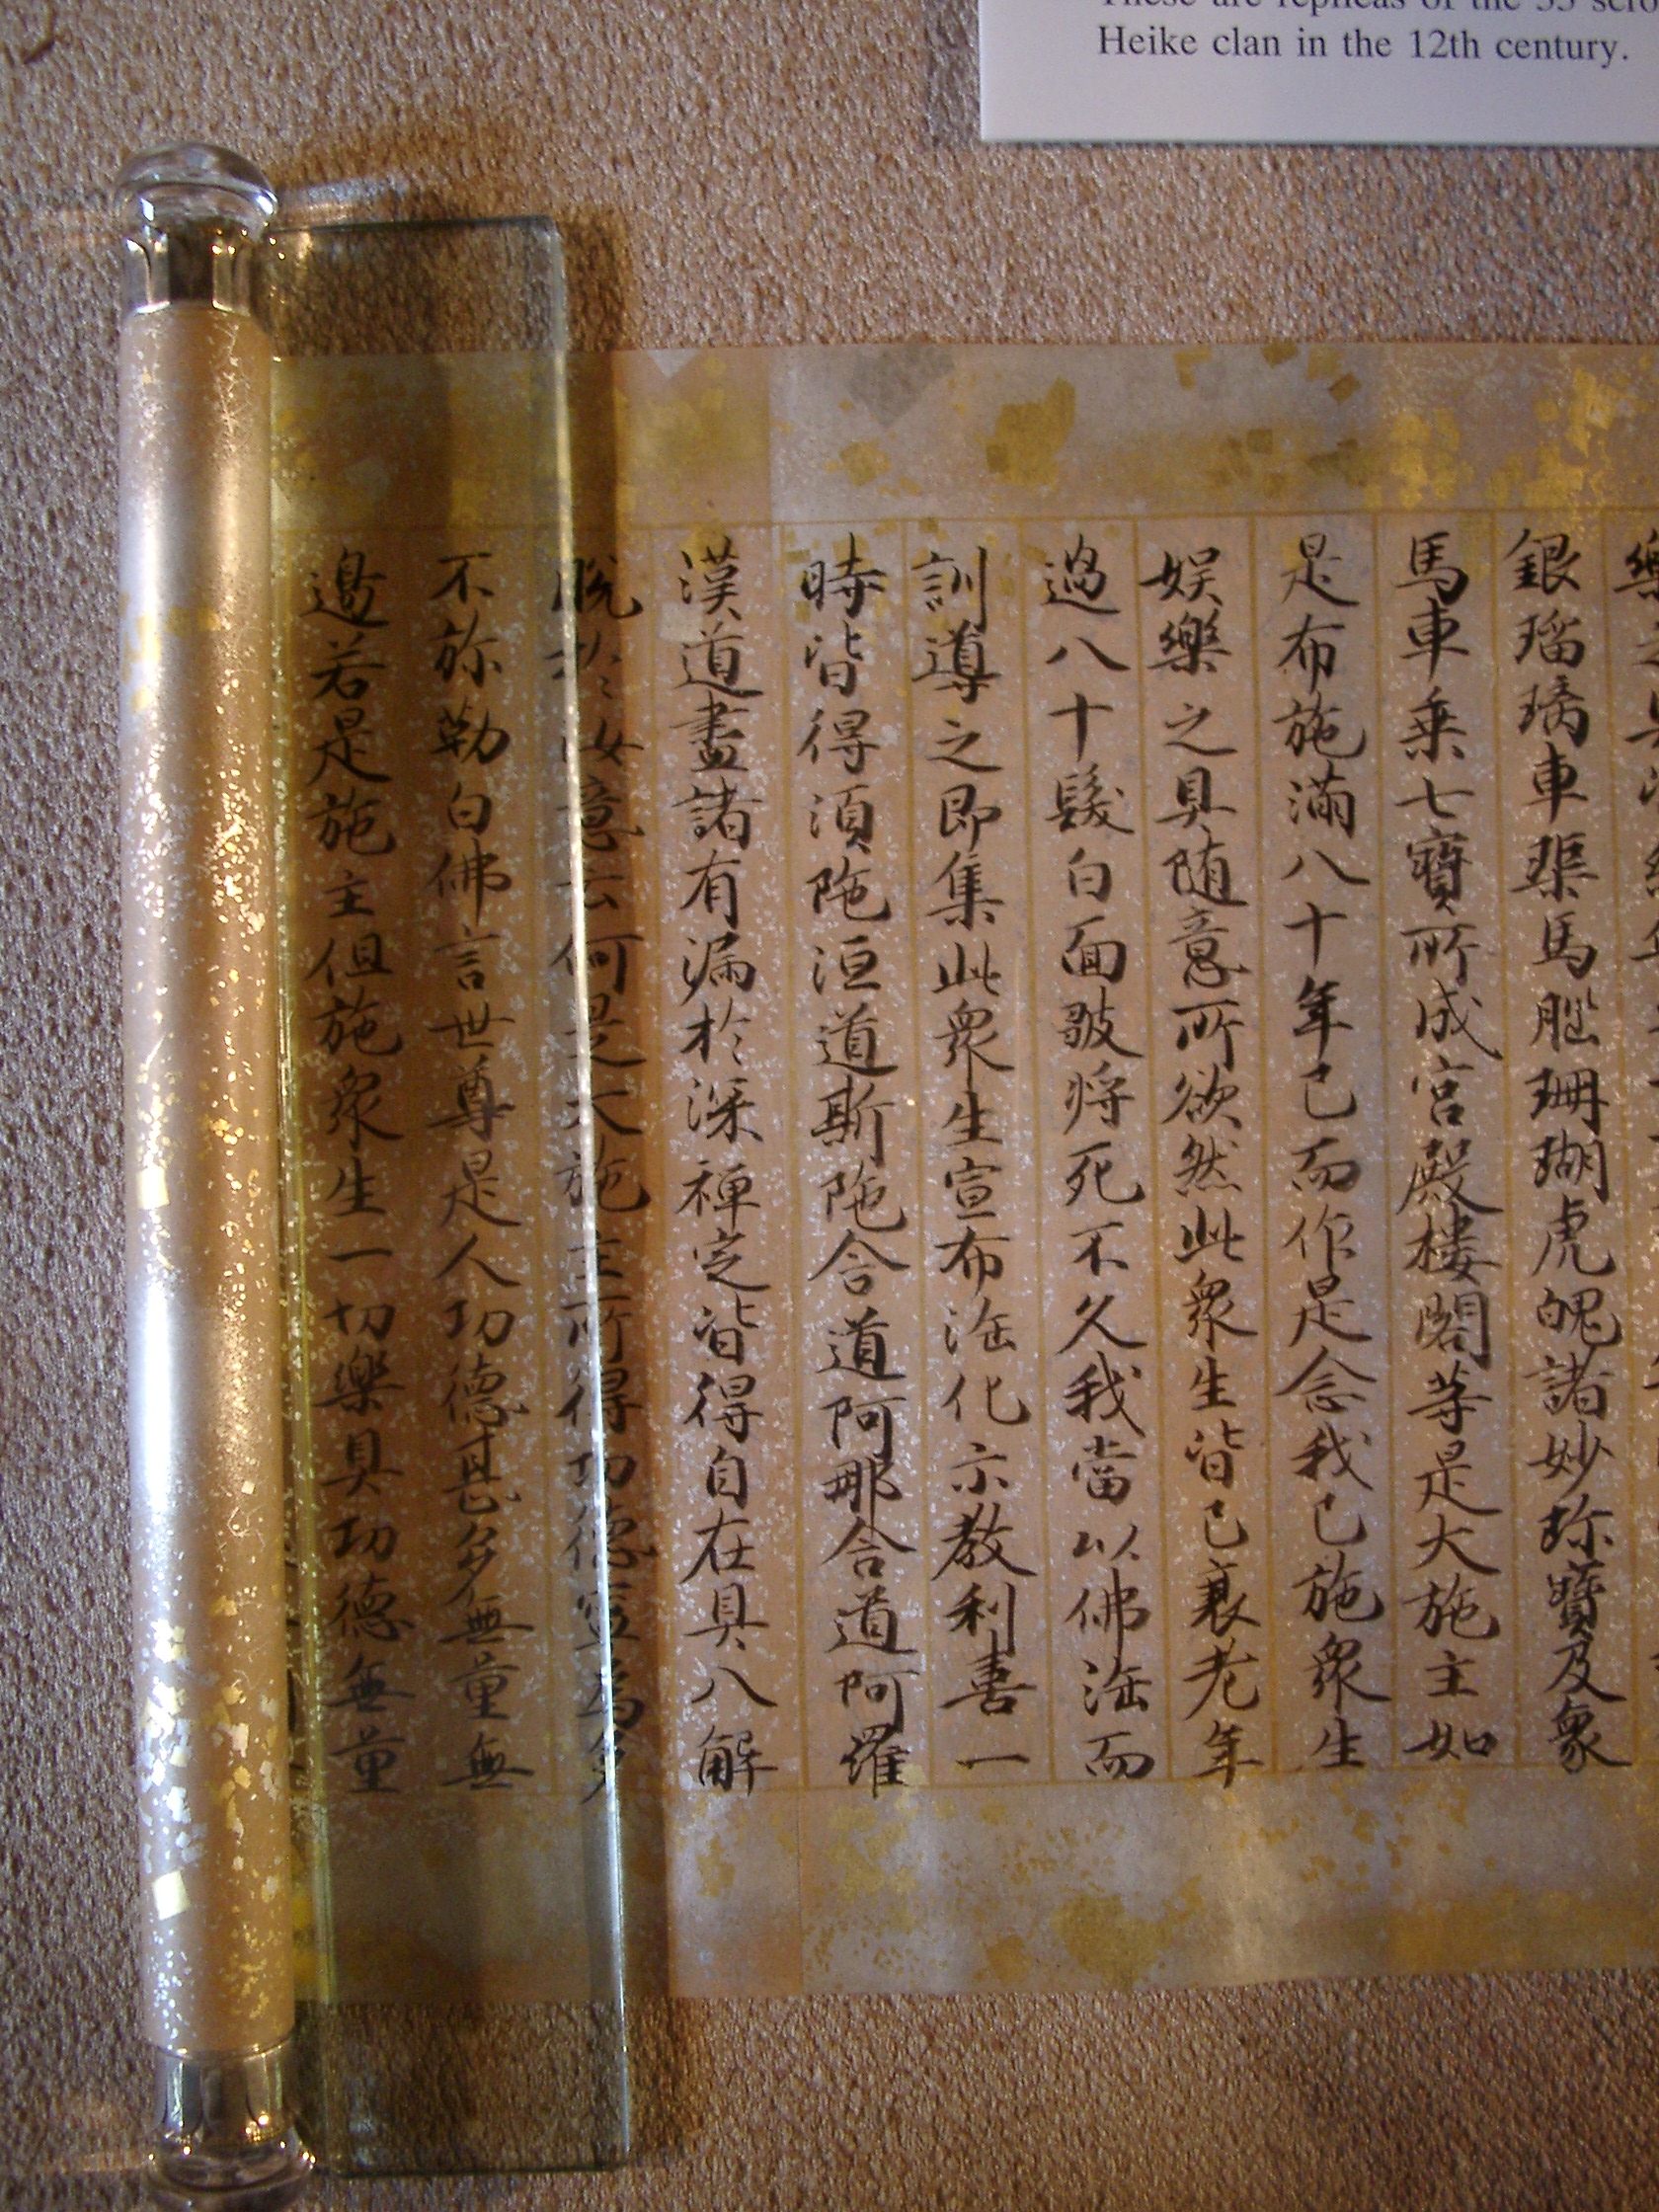 Heike clan in the 12th century.
銀瑠璃車𤦲馬腦珊瑚虎魄諸妙珎寶及象
馬車乗七寶所成宮殿樓閣等是大施主如
是布施滿八十年已而作是念我已施衆生
娯樂之具随意所欲然此衆生皆已衰老年
過八十髮白面皺将死不久我當以佛法而
訓導之即集此衆生宣布法化示教利喜一
時皆得湏陁洹道斯陁含道阿那含道阿羅
漢道盡諸有漏於深禅定皆得自在具八解
脱於汝意云何是大施主所得功德寧為多
不弥勒白佛言世尊是人功德甚多無量無
邉若是施主但施衆生一切樂具功德無量